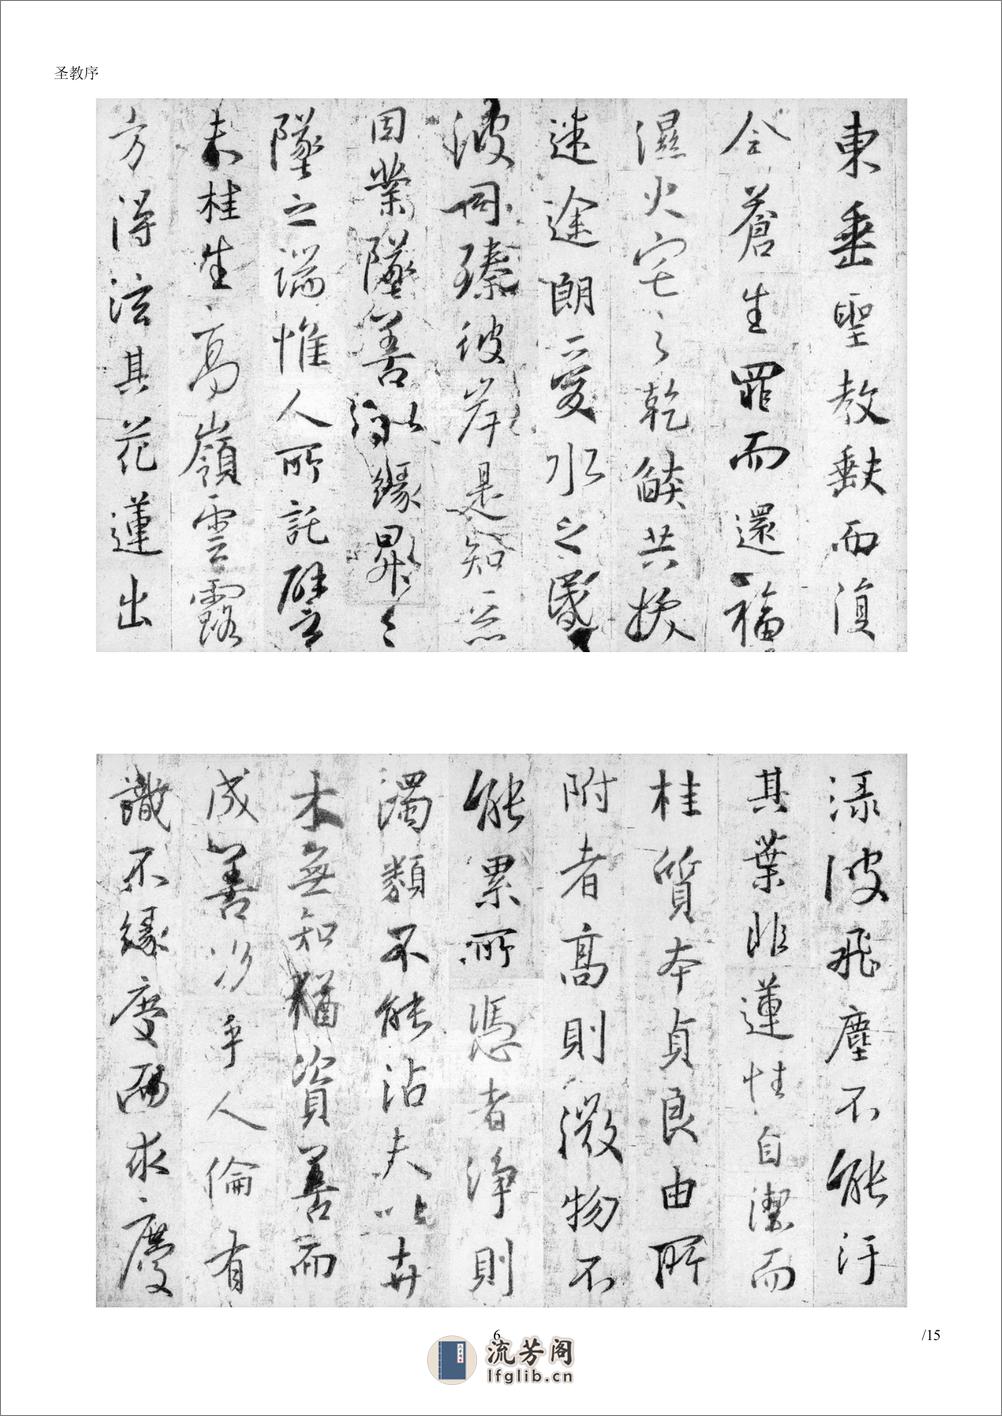 圣教序
東垂聖教缺而復
全蒼生罪而還福
濕火宅之乾燄共拔
迷途朗愛水之昏
波同臻彼岸是知惡
因業墜善以緣昇々
墜之端惟人所託譬
夫桂生高嶺雲露
方得泫其花蓮出
淥波飛塵不能汙
其葉非蓮性自潔而
桂質本貞良由所
附者高則微物不
能累所憑者淨則
濁類不能沾夫以卉
木無知猶資善而
成善況乎人倫有
識不緣慶而求慶
6
/15
流芳阁
lfglib.cn